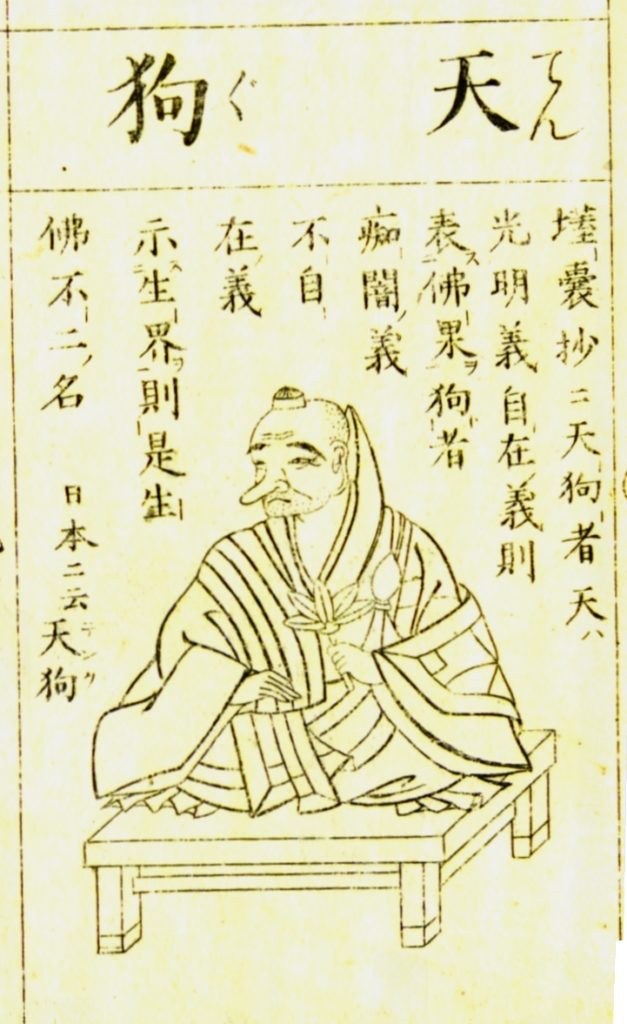 天狗
てんぐ
壒囊抄ニ天狗者天ハ
光明義自在義則
表佛果狗者
痴闇義
不自
在義
示生界則是生
佛不二名
日本ニ云天狗